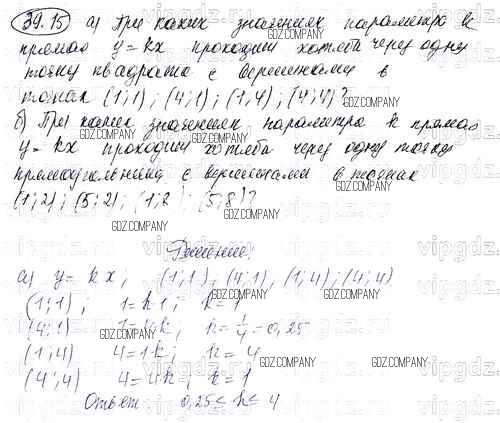 39.15 а) При каких значениях параметра k
прямая y=kx проходит хотя бы через одну
точку квадрата с вершинами в
точках (1;1); (4;1); (1;4); (4;4)?
б) При каких значениях параметра k прямая
y=kx проходит хотя бы через одну точку
прямоугольника с вершинами в точках
(1;2); (5;2); (1;8); (5;8)?
Решение:
а) y=kx; (1;1), (4;1), (1;4); (4;4)
(1;1); 1=k1; k=1
(4;1) 1=4k; k=1/4=0,25
(1;4) 4=1k; k=4
(4;4) 4=4k; k=1
Ответ 0,25≤k≤4